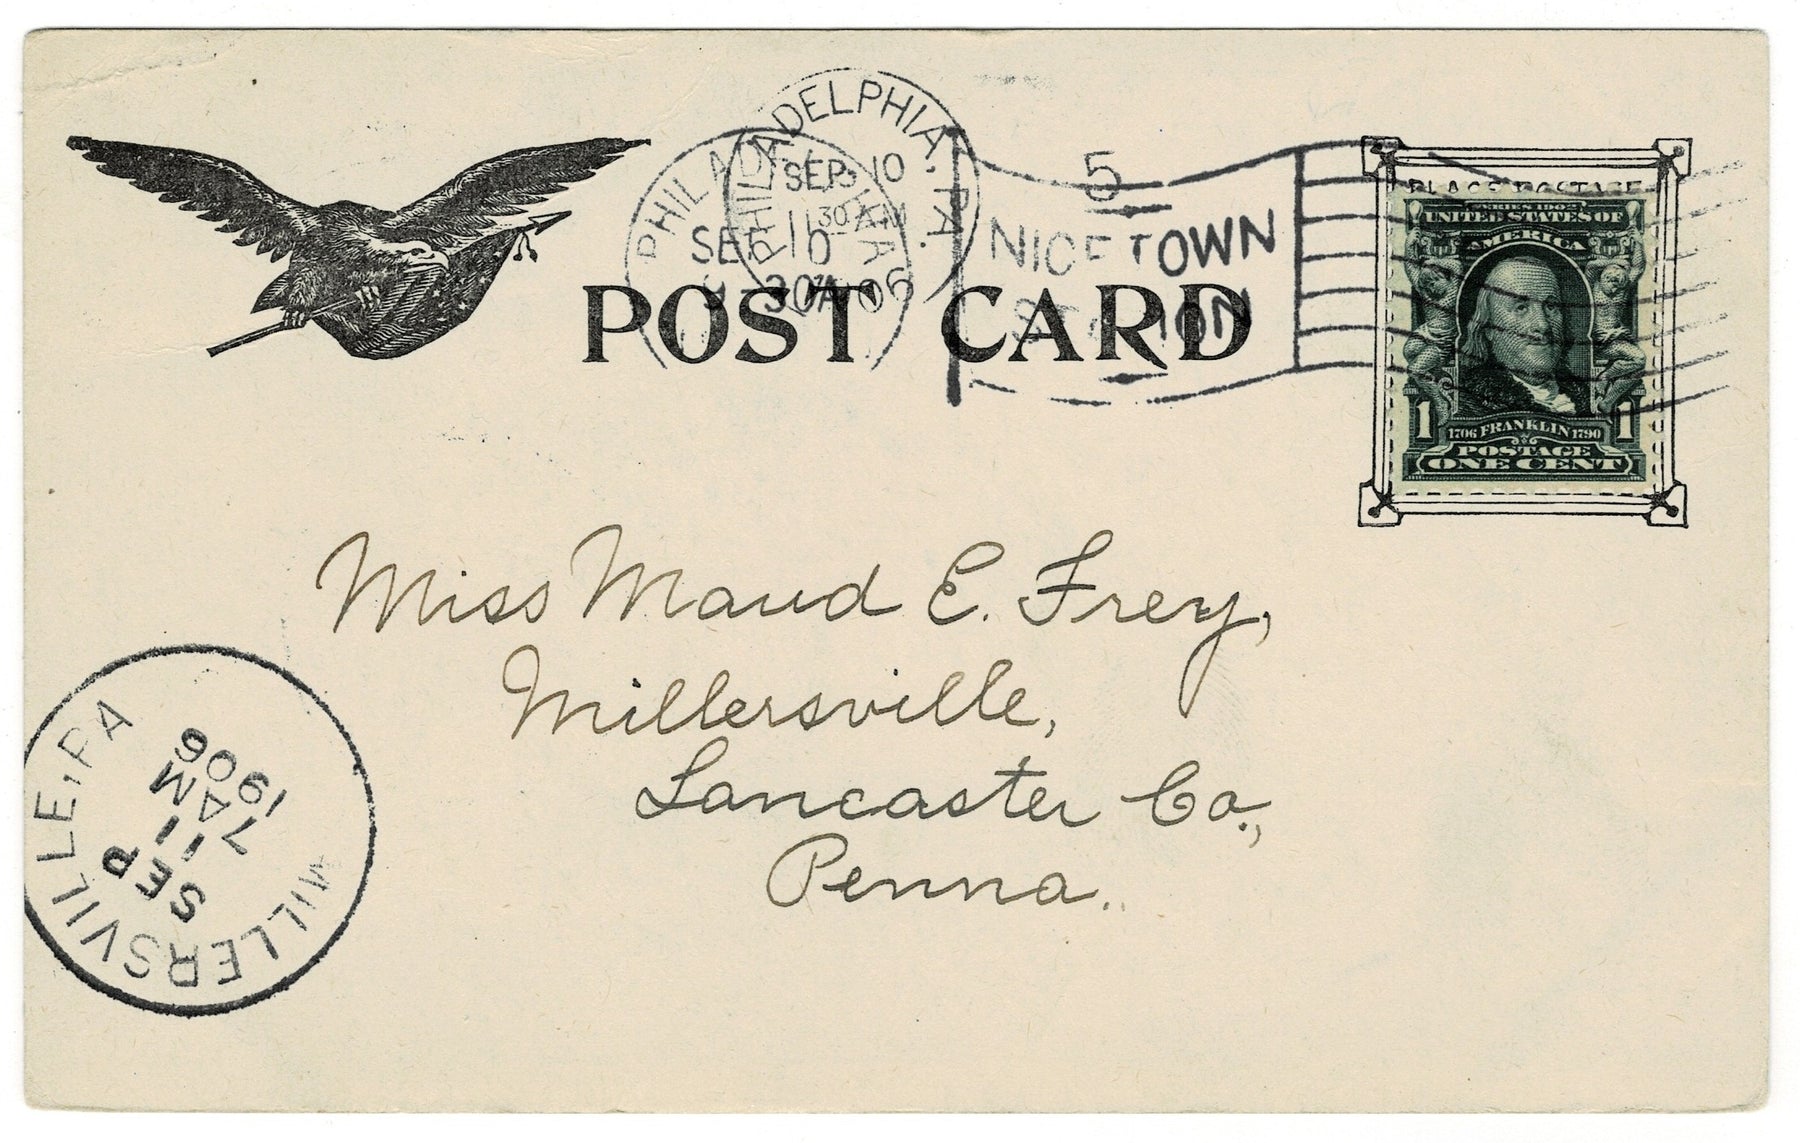 PHILADELPHIA, PA.
SEP 10
11 30 AM
PHILADELPHIA
SEP 10
30A
06
5
NICETOWN
STATION
POST CARD
PLACE POSTAGE
SERIES 1902
UNITED STATES OF
AMERICA
1 1
1706 FRANKLIN 1790
POSTAGE
ONE CENT
Miss Maud E. Frey,
Millersville,
Lancaster Co.,
Penna.
MILLERSVILLE, PA
SEP
11
7 AM
1906